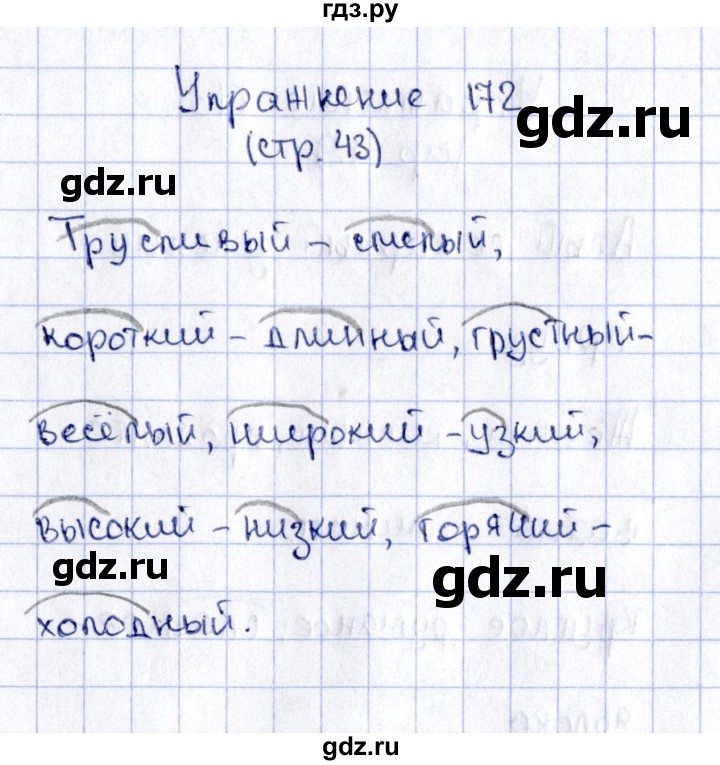 гдз.ру
Упражнение 172
gdz.ru
(стр. 43)
gdz.ru
Трусливый – смелый,
короткий – длинный, грустный –
весёлый, широкий – узкий,
высокий – низкий, горячий –
gdz.ru
gdz.ru
холодный.
gdz.ru